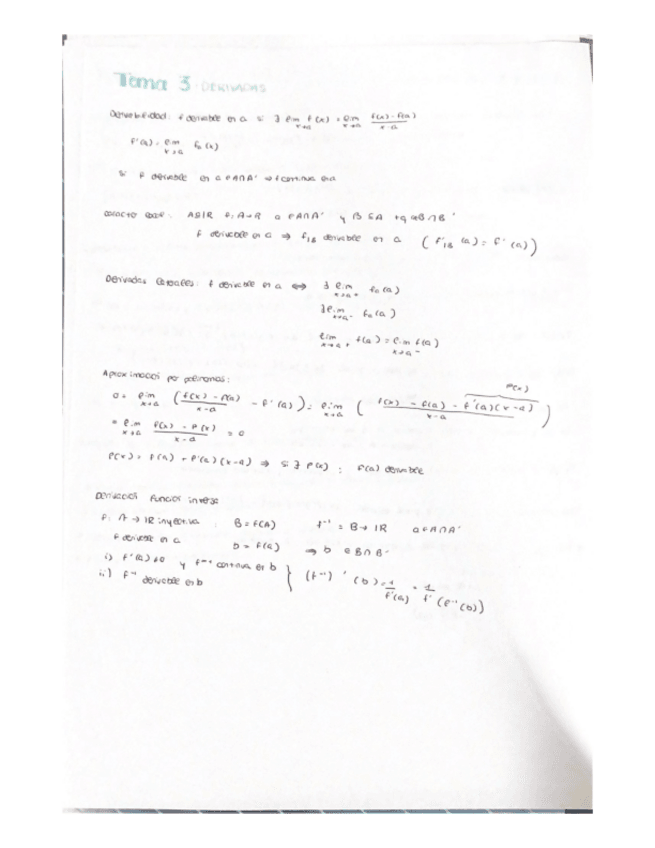 Tema 3 DERIVADAS
Derivabilidad: f derivable en a si ∃ lim x→a f(x) = lim x→a f(x)-f(a) / x-a
f'(a) = lim x→a fa(x)
Si f derivable en a ∈ A∩A' ⇒ f continua en a
Caracter local: A⊆IR f: A→R a ∈ A∩A' y B ⊆ A tq a∈B∩B'
f derivable en a ⇒ f|B derivable en a (f'|B (a) = f'(a))
Derivadas laterales: f derivable en a ⇔ ∃ lim x→a+ fa(a)
∃ lim x→a- fa(a)
lim x→a+ f(a) = lim x→a- f(a)
Aproximación por polinomios:
P(x)
0 = lim x→a ( f(x) - f(a) / x-a - f'(a) ) = lim x→a ( f(x) - f(a) - f'(a)(x-a) / x-a )
= lim x→a f(x) - P(x) / x-a = 0
P(x) = f(a) + f'(a)(x-a) ⇒ si ∃ P(x) : f(a) derivable
Derivación función inversa
f: A→IR inyectiva : B = f(A) f⁻¹ = B→IR a∈A∩A'
f derivable en a b = f(a) ⇒ b ∈ B∩B'
i) f'(a) ≠0 y f⁻¹ continua en b
ii) f⁻¹ derivable en b } (f⁻¹)'(b) = 1/f'(a) = 1/f'(f⁻¹(b))